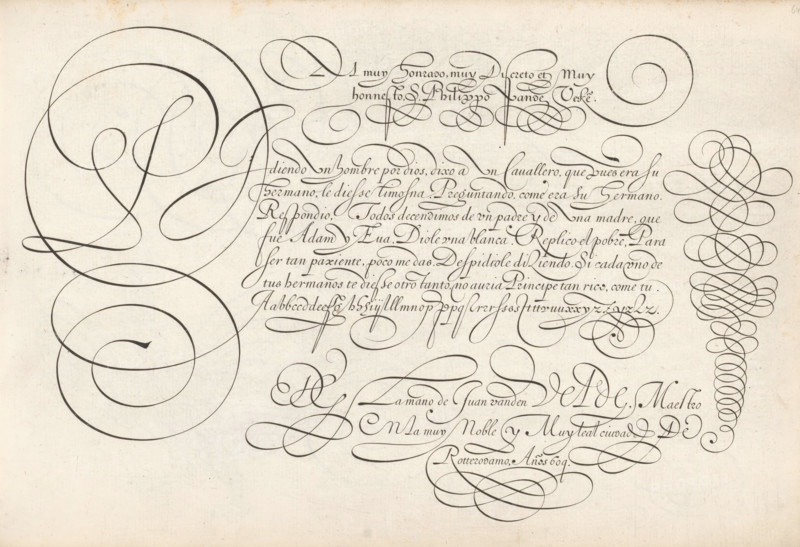 Al muy honrado, muy Discreto et Muy
honnesto, S. Philippo vande Veke.
Pidiendo Un hombre por dios, dixo a Un Cavallero, que pues era su
hermano, le diesse limosna. Preguntando, come era Su Hermano.
Respondio, Todos decendimos de vn padre y de Una madre, que
fue Adam y Eua. Diole vna blanca. Replico el pobre, Para
ser tan paxiente, poco me das. Despidiole diZiendo. Si cada vno de
tus hermanos te diesse otro tanto, no auria Principe tan rico, come tu.
Aabbccddeeffg hhiijjllmnop
De La mano de Juan vanden Velde, Maestro
En la muy Noble y Muy leal ciudad DE
Rotterodamo, Año 1609.